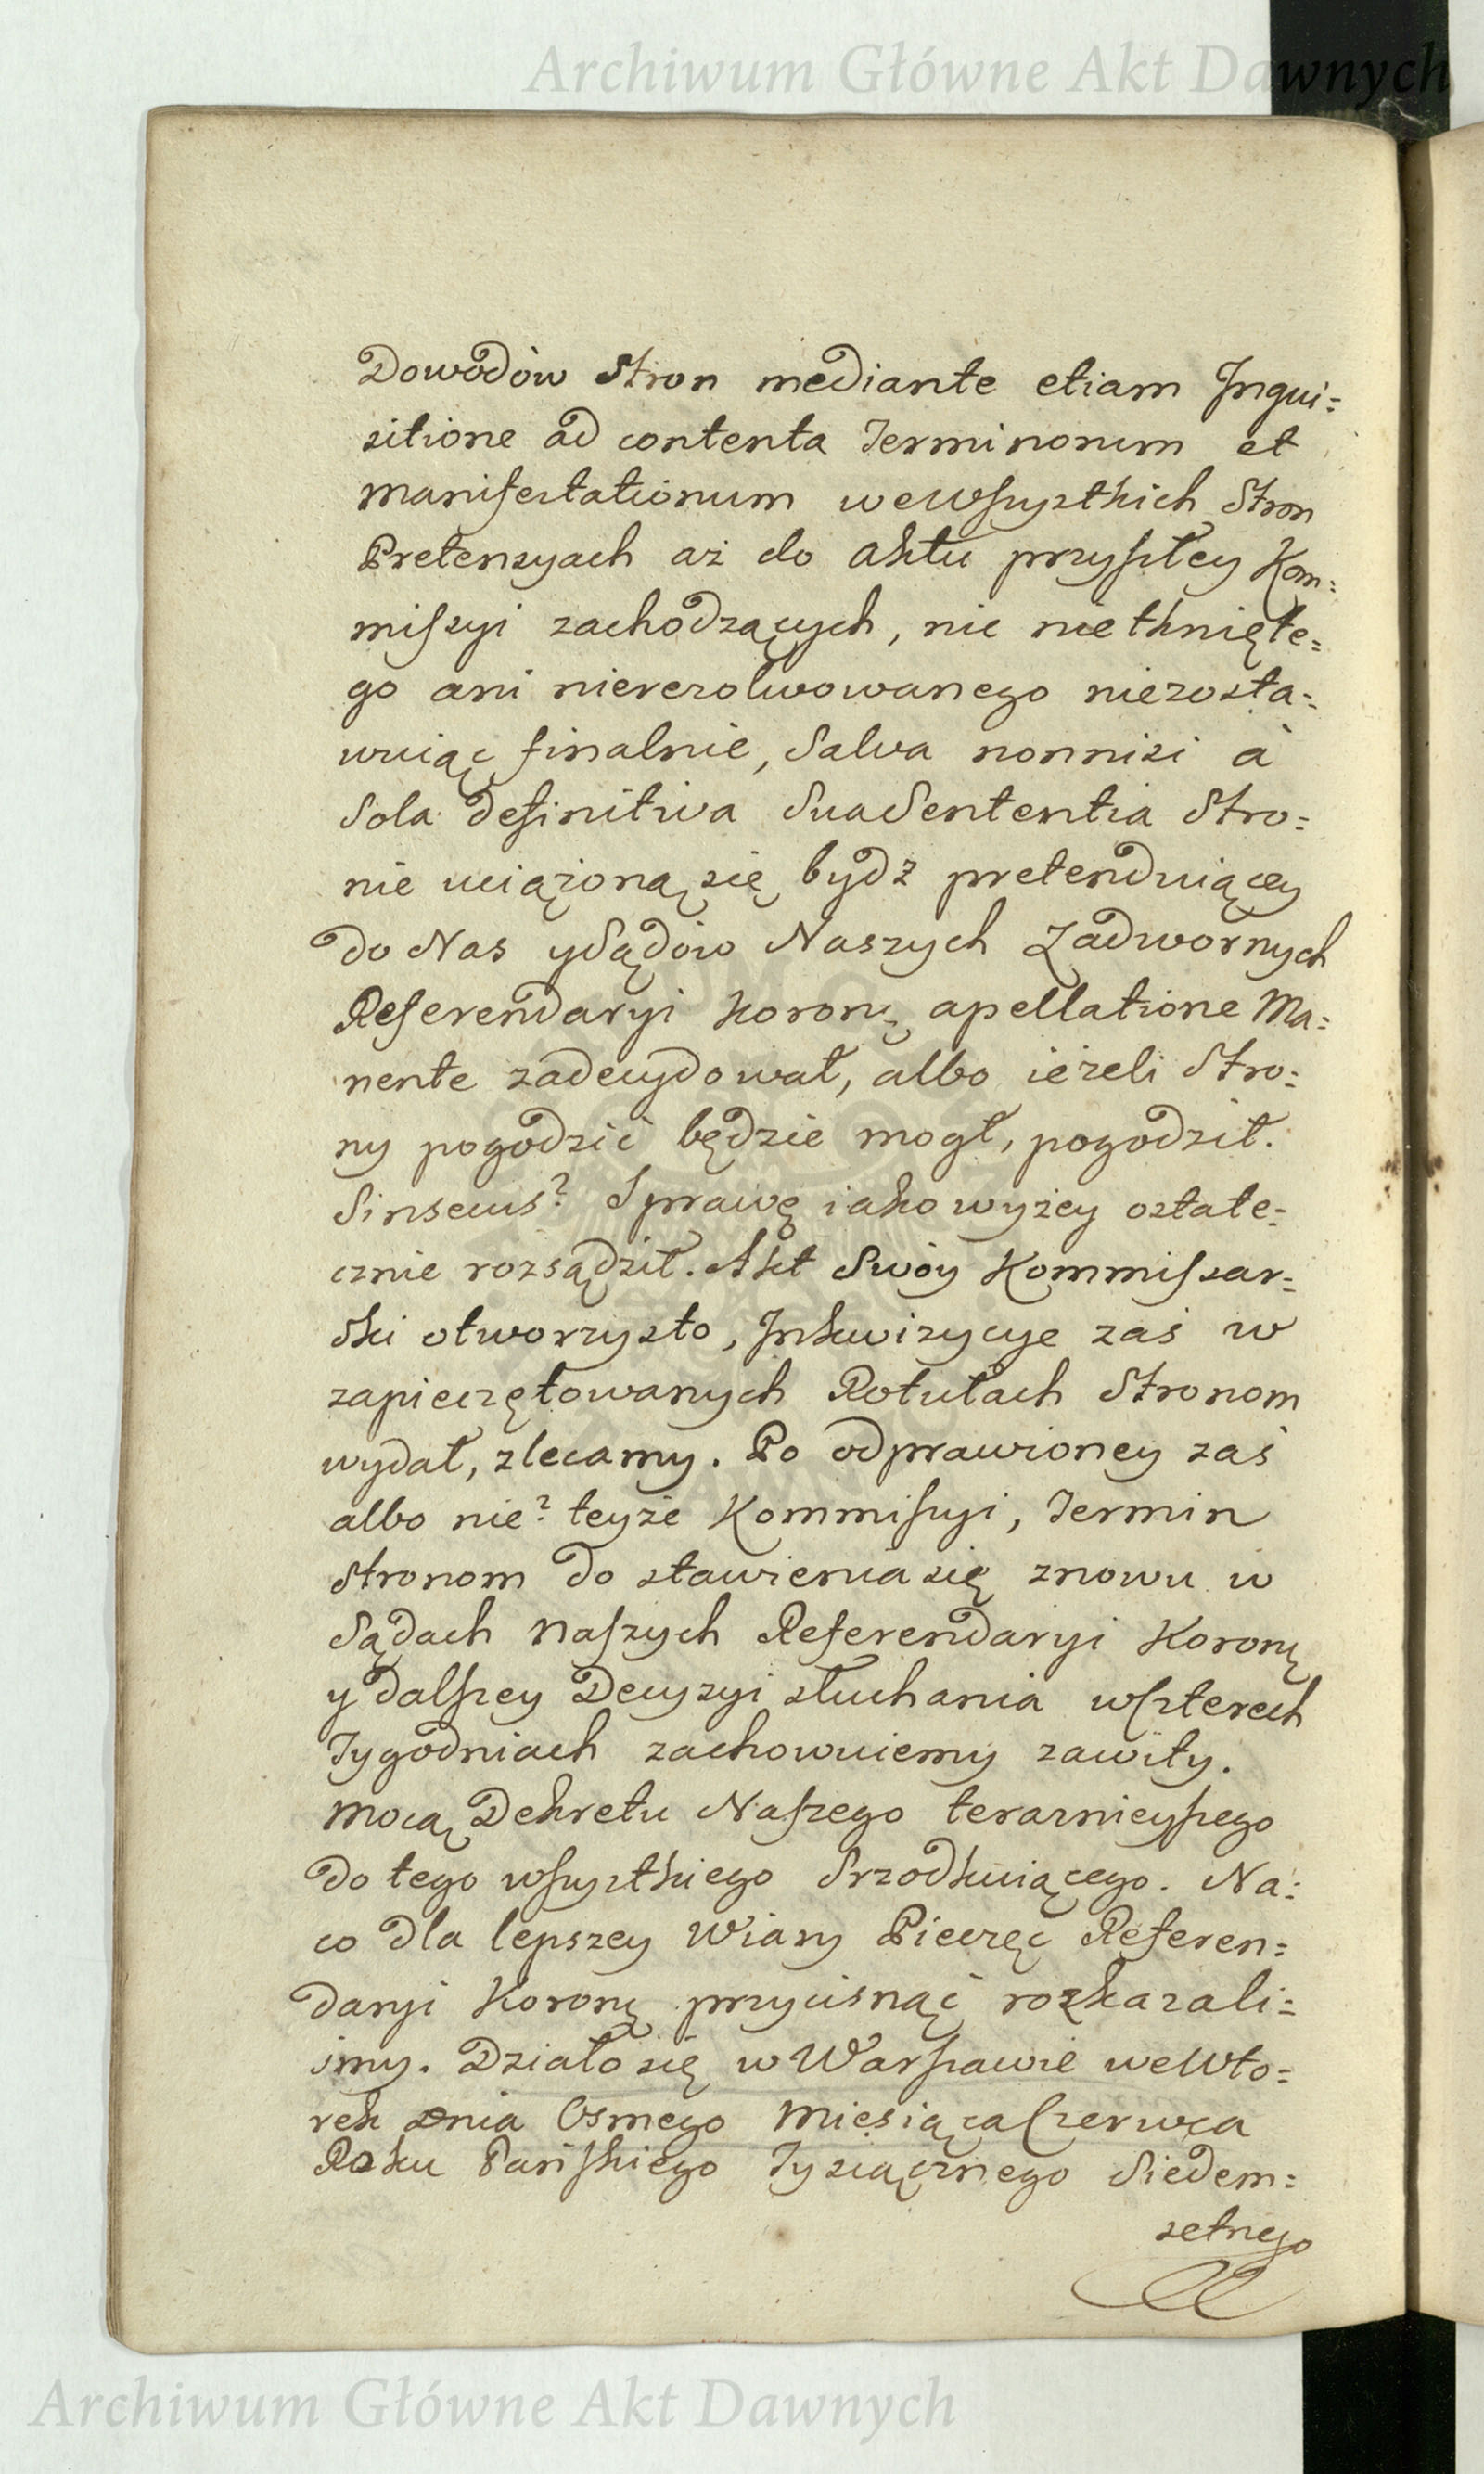 Archiwum Główne Akt Dawnych
Dowodów Stron mediante etiam Inqui=
sitione ad contenta Terminorum et
manifestationum we wszystkich Stron
Pretensyach aż do aktu przyszłey Kom=
missyi zachodzących, nic nie tknięte=
go ani nierezolwowanego niezosta=
wuiąc finalnie, Salva nonnisi à
Sola definitiva Sua Sententia Stro=
nie uciążoną się bydź pretenduiącey
do Nas y Sądów Naszych Zadwornych
Referendaryi Koronę apellatione Ma=
nente zadecydował, albo ieżeli Stro=
ny pogodzić będzie mogł, pogodził.
Sinsecus? Sprawę iako wyżey ostate=
cznie rozsądził. Akt Swóy Kommissar=
ski otworzysto, Inkwizycye zaś w
zapieczętowanych Rotułach Stronom
wydał, zlecamy. Po odprawioney zaś
albo nie? teyże Kommissyi, Termin
Stronom do stawienia się znowu w
Sądach naszych Referendaryi Koronę
y dalszey Decyzyi słuchania wczterech
Tygodniach zachowuiemy zawity.
mocą Dekretu Naszego teraznieyszego
do tego wszystkiego Srzodkuiącego. Na=
co dla lepszey Wiary Pieczęć Referen=
daryi Koronę przycisnąć rozkazali=
śmy. Działo się w Warszawie we Wto=
rek dnia Osmego Miesiąca Czerwca
Roku Pańskiego Tysiącznego Siedem=
setnego
Archiwum Główne Akt Dawnych